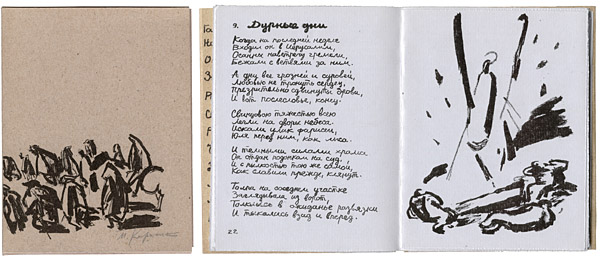 9. Дурные дни
Когда на последней неделе
Входил он в Иерусалим,
Осанны навстречу гремели,
Бежали с ветвями за ним.
А дни все грозней и суровей,
Любовью не тронуть сердец,
Презрительно сдвинуты брови,
И вот послесловье, конец.
Свинцовою тяжестью всею
Легли на дворы небеса.
Искали улик фарисеи,
Юля перед ним, как лиса.
И темными силами храма
Он отдан подонкам на суд,
И с пылкостью тою же самой,
Как славили прежде, клянут.
Толпа на соседнем участке
Заглядывала из ворот,
Толклись в ожиданье развязки
И тыкались взад и вперед.
22